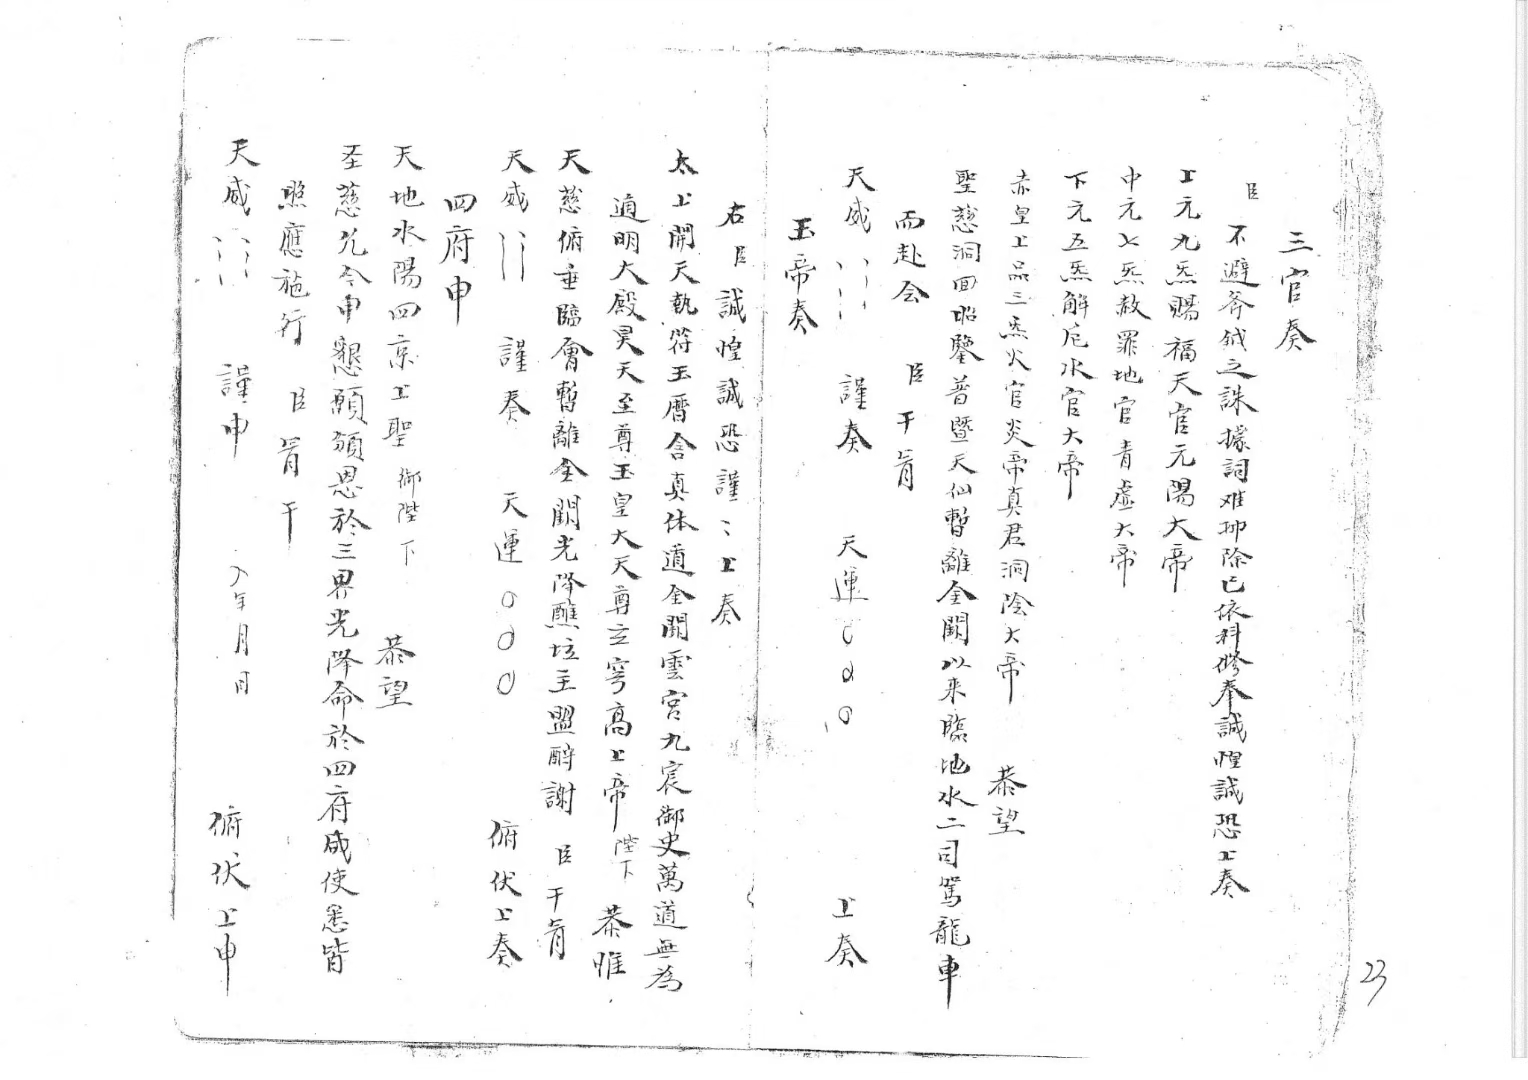 三官奏
臣 不避斧鉞之誅據詞难抑除已依科修奉誠惶誠恐上奏
上元九炁賜福天官元陽大帝
中元七炁赦罪地官青虛大帝
下元五炁解厄水官大帝
赤皇上品三炁火官炎帝真君洞陰大帝 恭望
聖慈洞回昭鑒普暨天仙暫離金闕以来臨地水二司駕龍車
而赴会 臣干胃
天威 謹奏 天運 上奏
玉帝奏
右臣誠惶誠恐謹〻上奏
太上開天執符玉曆含真体道金闕雲宮九宸御史萬道無為
通明大殿昊天至尊玉皇大天尊玄穹高上帝陛下 恭惟
天慈俯垂臨會暫離金闕光降醮坛主盟酧謝 臣干胃
天威 謹奏 天運 俯伏上奏
四府申
天地水陽四京上聖御陛下 恭望
圣慈允今申懇願頒恩於三界光降命於四府咸使悉皆
照應施行 臣胃干
天威 謹申 年月日 俯伏上申
23